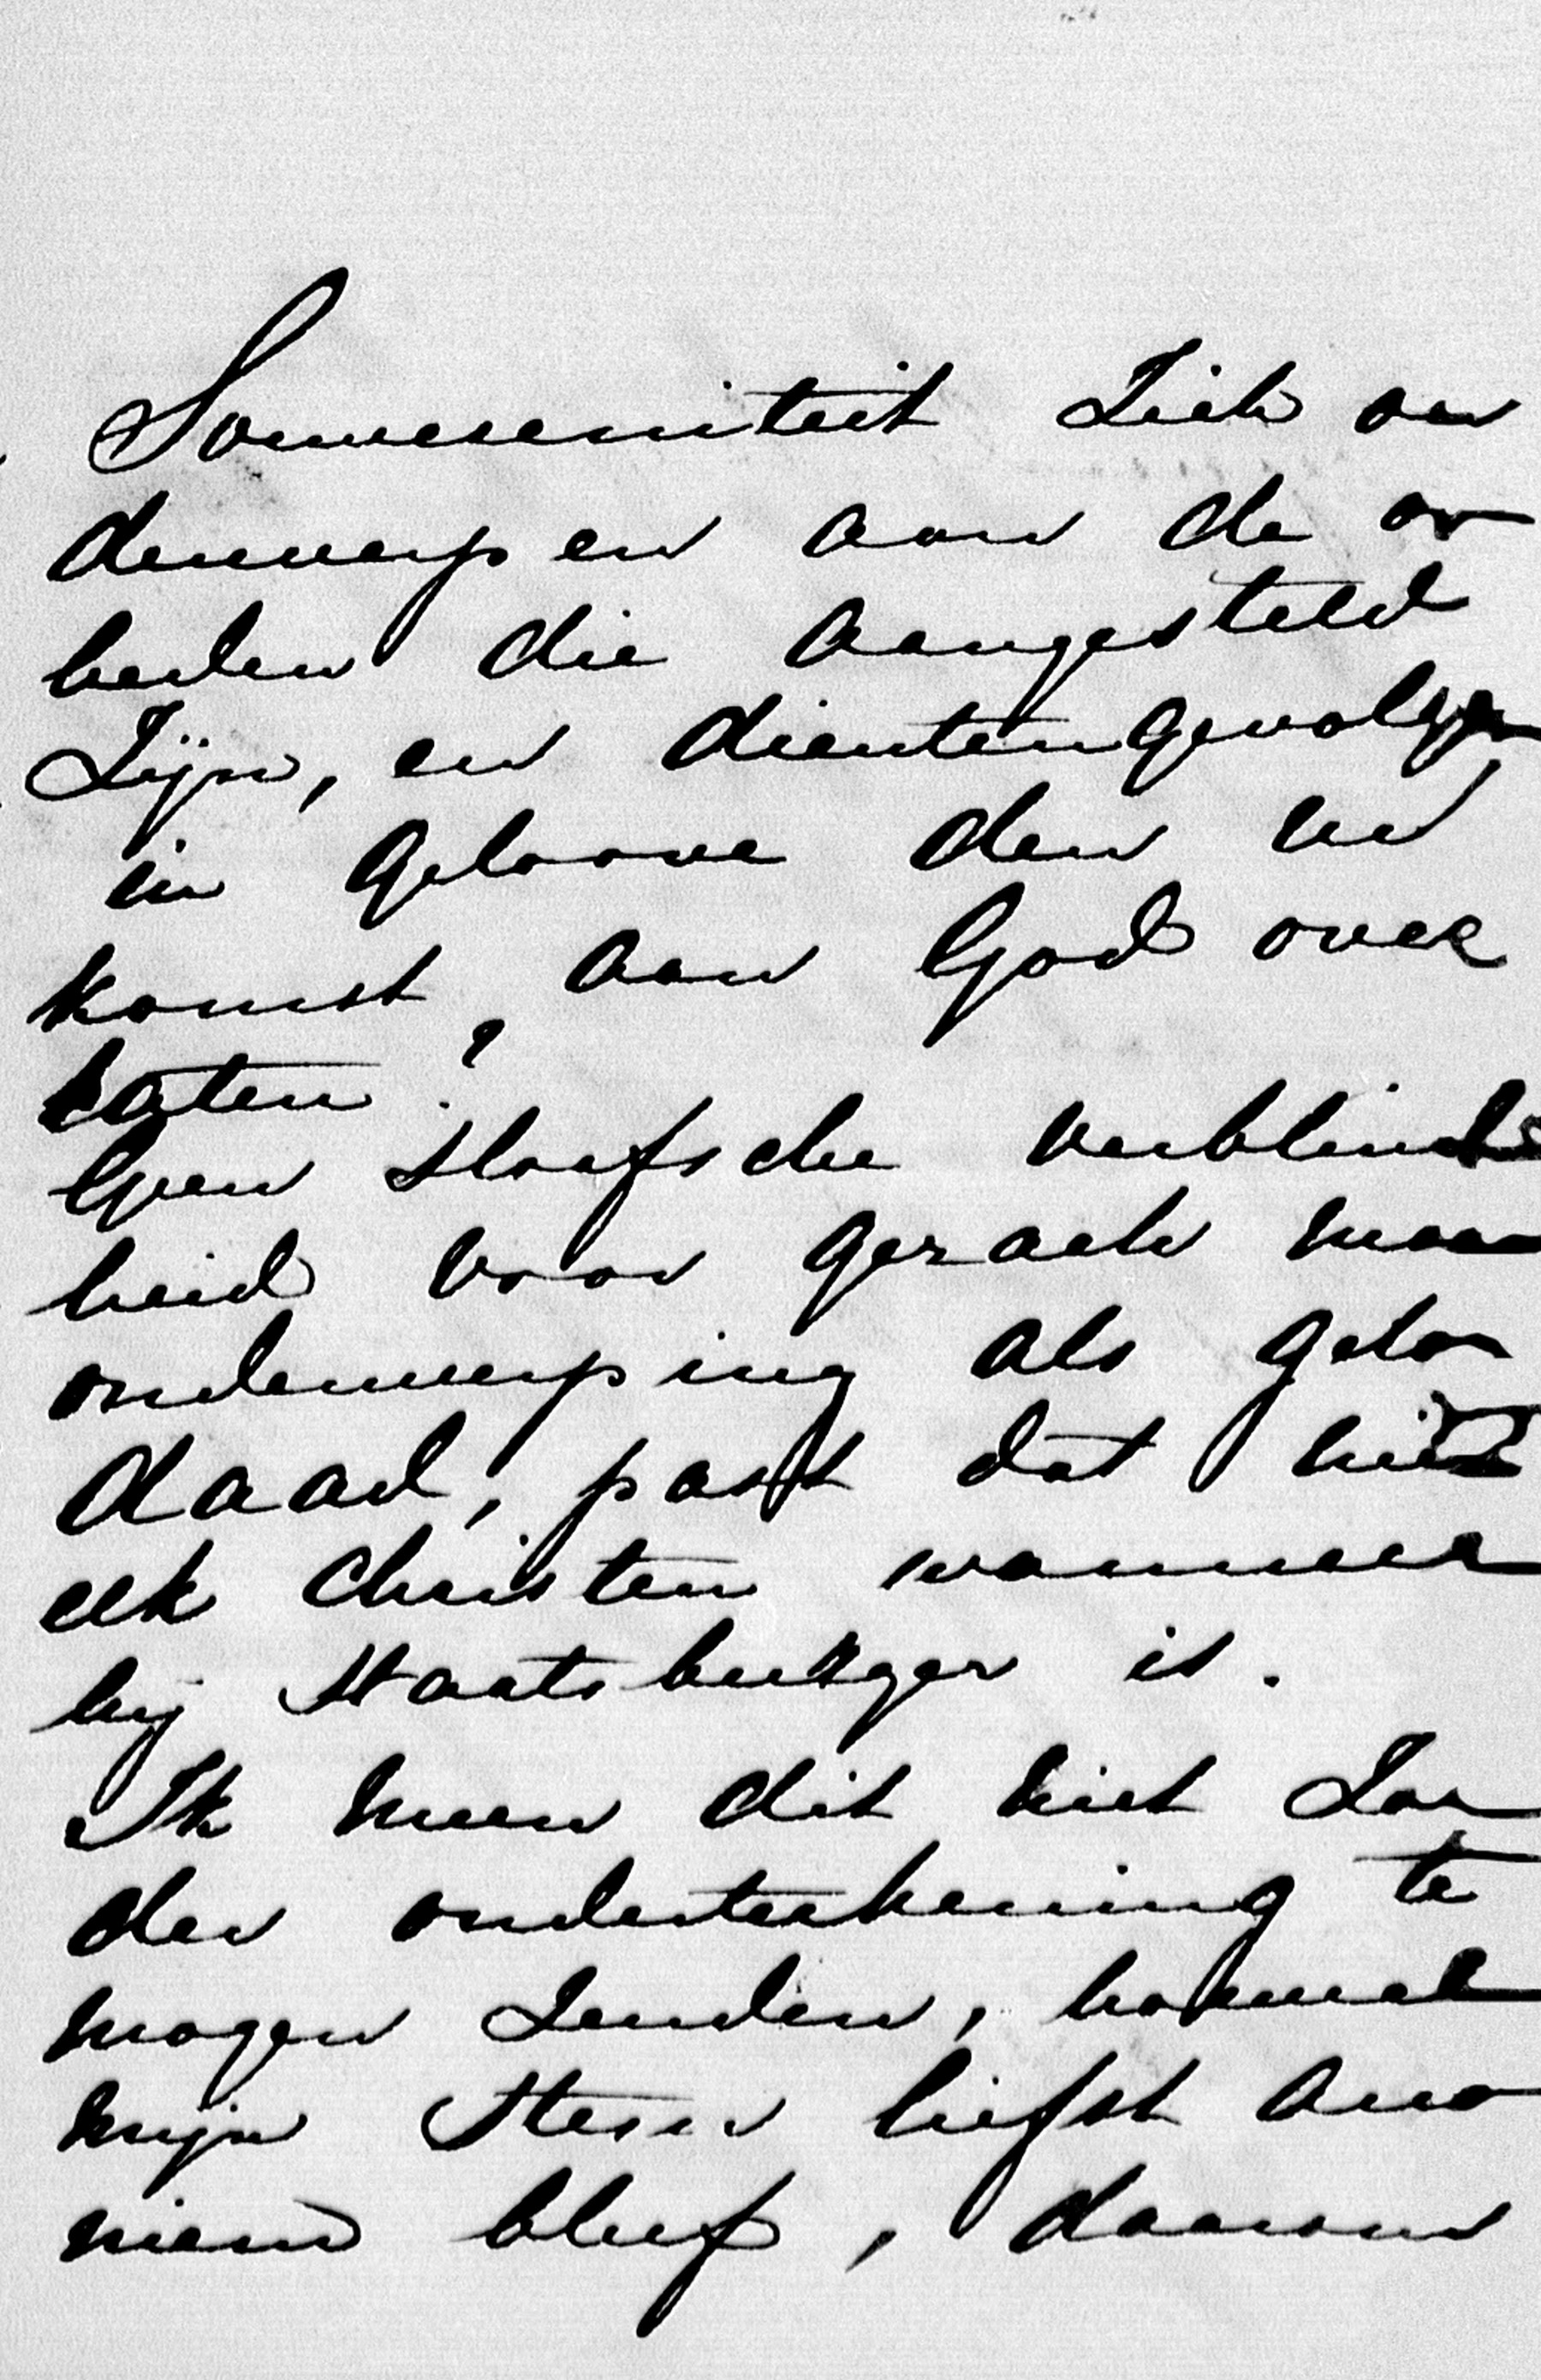 Souvereniteit Zich on
derwerpen aan de ov
heden die aangesteld
Zijn, en dientengevolge
in geloove den uit
komst, aan God over
laten?
Geen slaafsche verblind
heid voor gezach maar
onderwerping als geloo
daad, past dat niet
elk Christen wanneer
hij Staatsburger is.
Ik meen dit niet Zon
der onderteekening te
mogen Zenden, hoewel
mijn Stem liefst ano
niem bleef, daarom